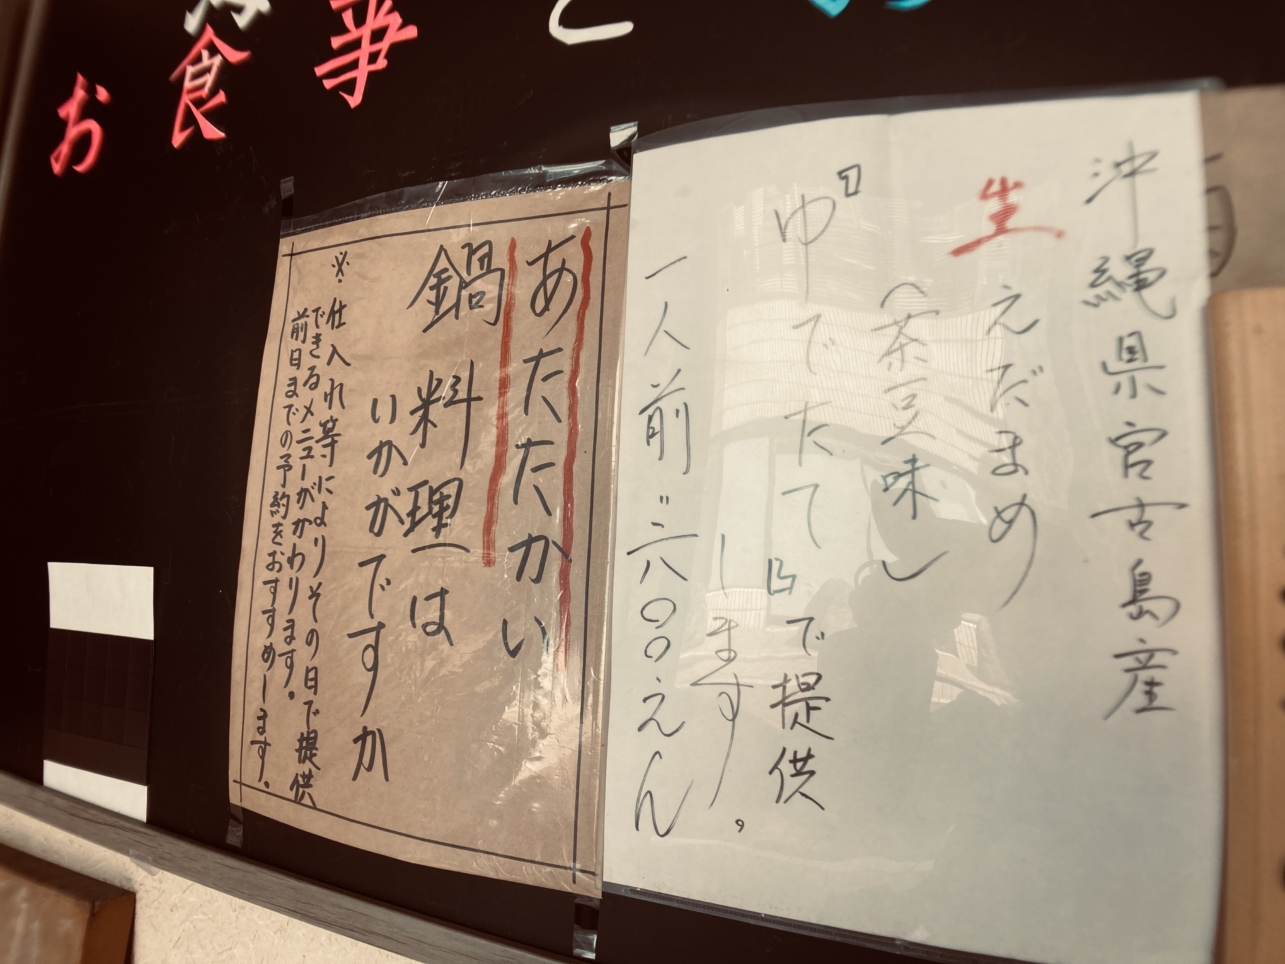 お食事と
沖縄県宮古島産
生えだまめ
(茶豆味)
『ゆでたて』で提供
します。
一人前〝六〇〇えん
あたたかい
鍋料理は
いかがですか
※仕入れ等によりその日で提供
できるメニューがかわります。
前日までの予約をおすすめします。